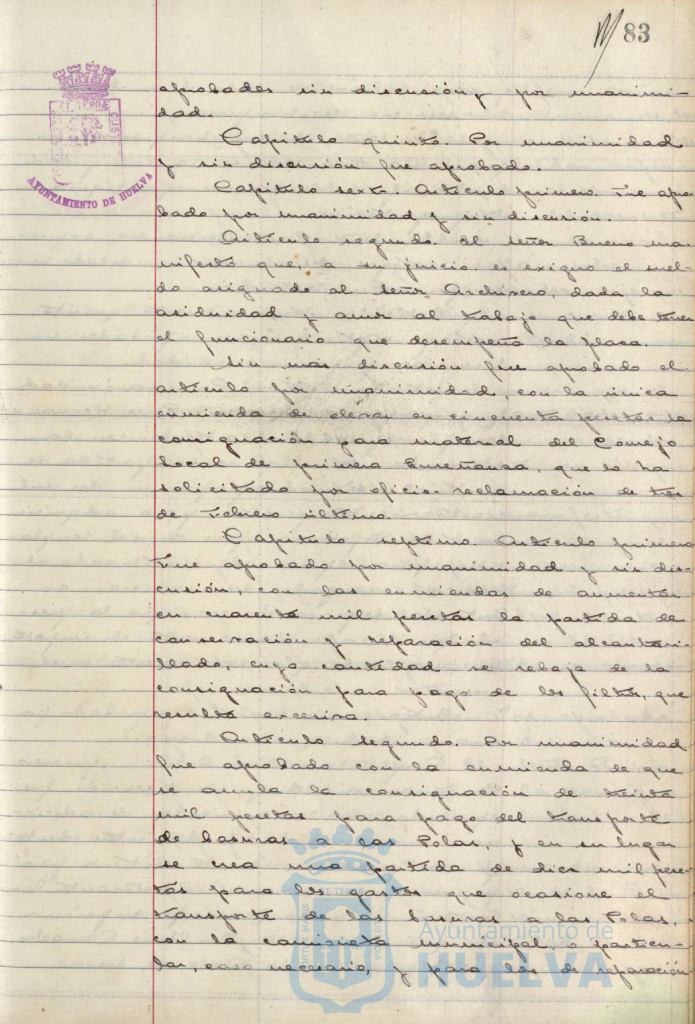 83
aprobados sin discusión y por unanimi-
dad.
Capítulo quinto. Por unanimidad
y sin discusión fue aprobado.
Capítulo sexto. Artículo primero. Fue apro
bado por unanimidad y sin discusión.
Artículo segundo. El señor Bueno ma-
nifestó que, a su juicio, es exiguo el suel-
do asignado al señor Archivero, dada la
asiduidad y amor al trabajo que debe tener
el funcionario que desempeña la plaza.
Sin más discusión fue aprobado el
artículo por unanimidad, con la única
enmienda de elevar en cincuenta pesetas la
consignación para material del Consejo
local de primera Enseñanza, que lo ha
solicitado por oficio-reclamación de tres
de Febrero último.
Capítulo septimo. Artículo primero
Fue aprobado por unanimidad y sin dis-
cusión, con las enmiendas de aumentar
en cuarenta mil pesetas la partida de
conservación y reparación del alcantari-
llado, cuya cantidad se rebaja de la
consignación para pago de los filtros, que
resulta excesiva.
Artículo segundo. Por unanimidad
fue aprobado con la enmienda de que
se anula la consignación de treinta
mil pesetas para pago del transporte
de basuras a las Colas, y en su lugar
se crea una partida de diez mil pese-
tas para los gastos que ocasione el
transporte de las basuras a las Colas,
con la camioneta municipal, o particu-
lar, caso necesario, y para los de reparación
ET TERRÆ
CUSTODIA
AYUNTAMIENTO DE HUELVA
Ayuntamiento de
HUELVA